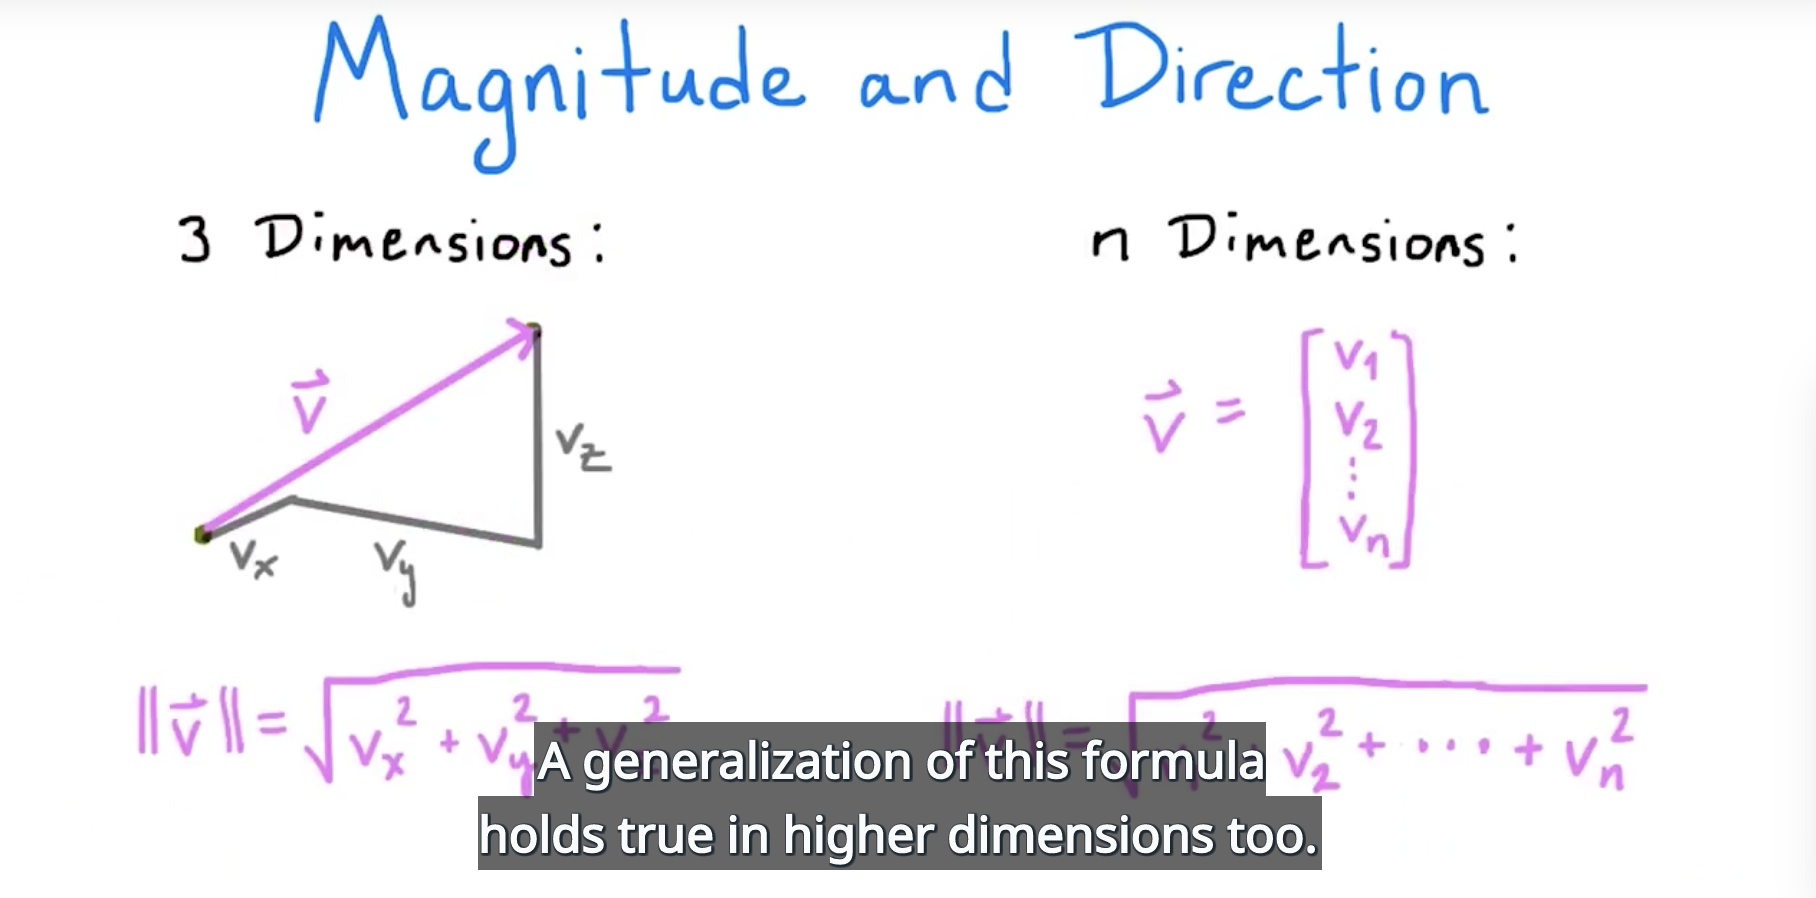 Magnitude and Direction
3 Dimensions:
v⃗
v_z
v_x
v_y
‖v⃗‖ = √(v_x² + v_y² + v²
n Dimensions:
v⃗ = [v₁
v₂
⋮
v_n]
‖v⃗‖ = √(v₁² + v₂² + ···· + v_n²
A generalization of this formula
holds true in higher dimensions too.